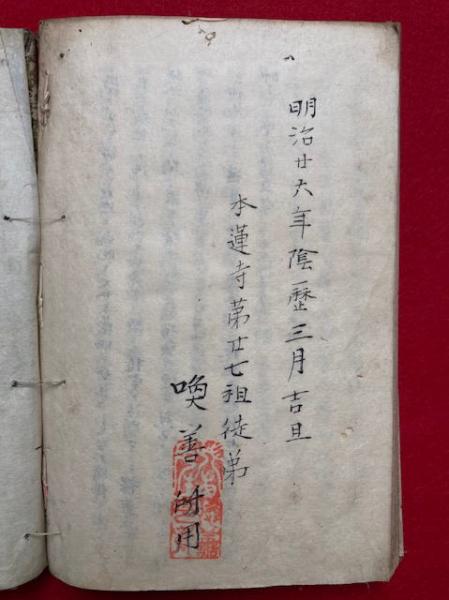 明治廿六年陰歴三月吉旦
本蓮寺第廿七祖徒弟
喚善所用